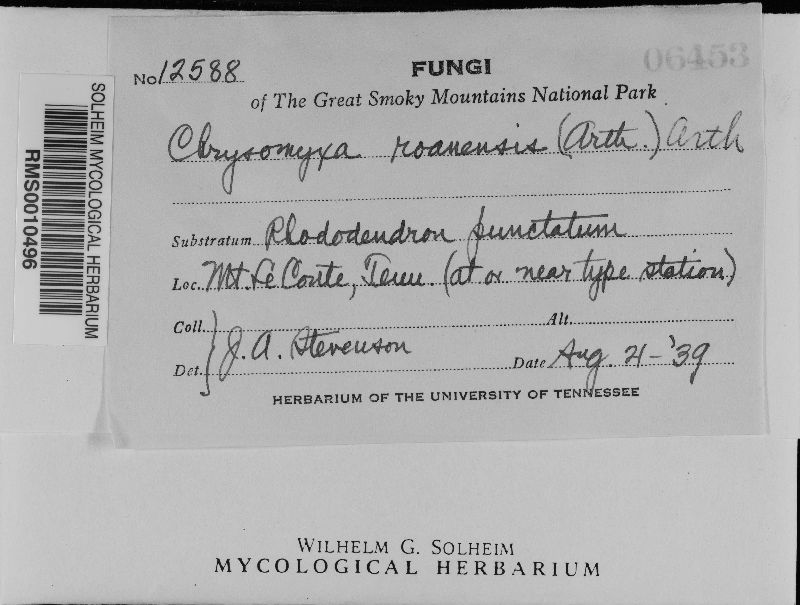 No. 12588
FUNGI
06453
of The Great Smoky Mountains National Park
Chrysomyxa roanensis (Arth.) Arth
Substratum Rhododendron punctatum
Loc. Mt. Le Conte, Tenn. (at or near type station)
Coll.
Alt.
J. A. Stevenson
Det.
Date Aug. 21-'39
HERBARIUM OF THE UNIVERSITY OF TENNESSEE
SOLHEIM MYCOLOGICAL HERBARIUM
RMS0010496
WILHELM G. SOLHEIM
MYCOLOGICAL HERBARIUM